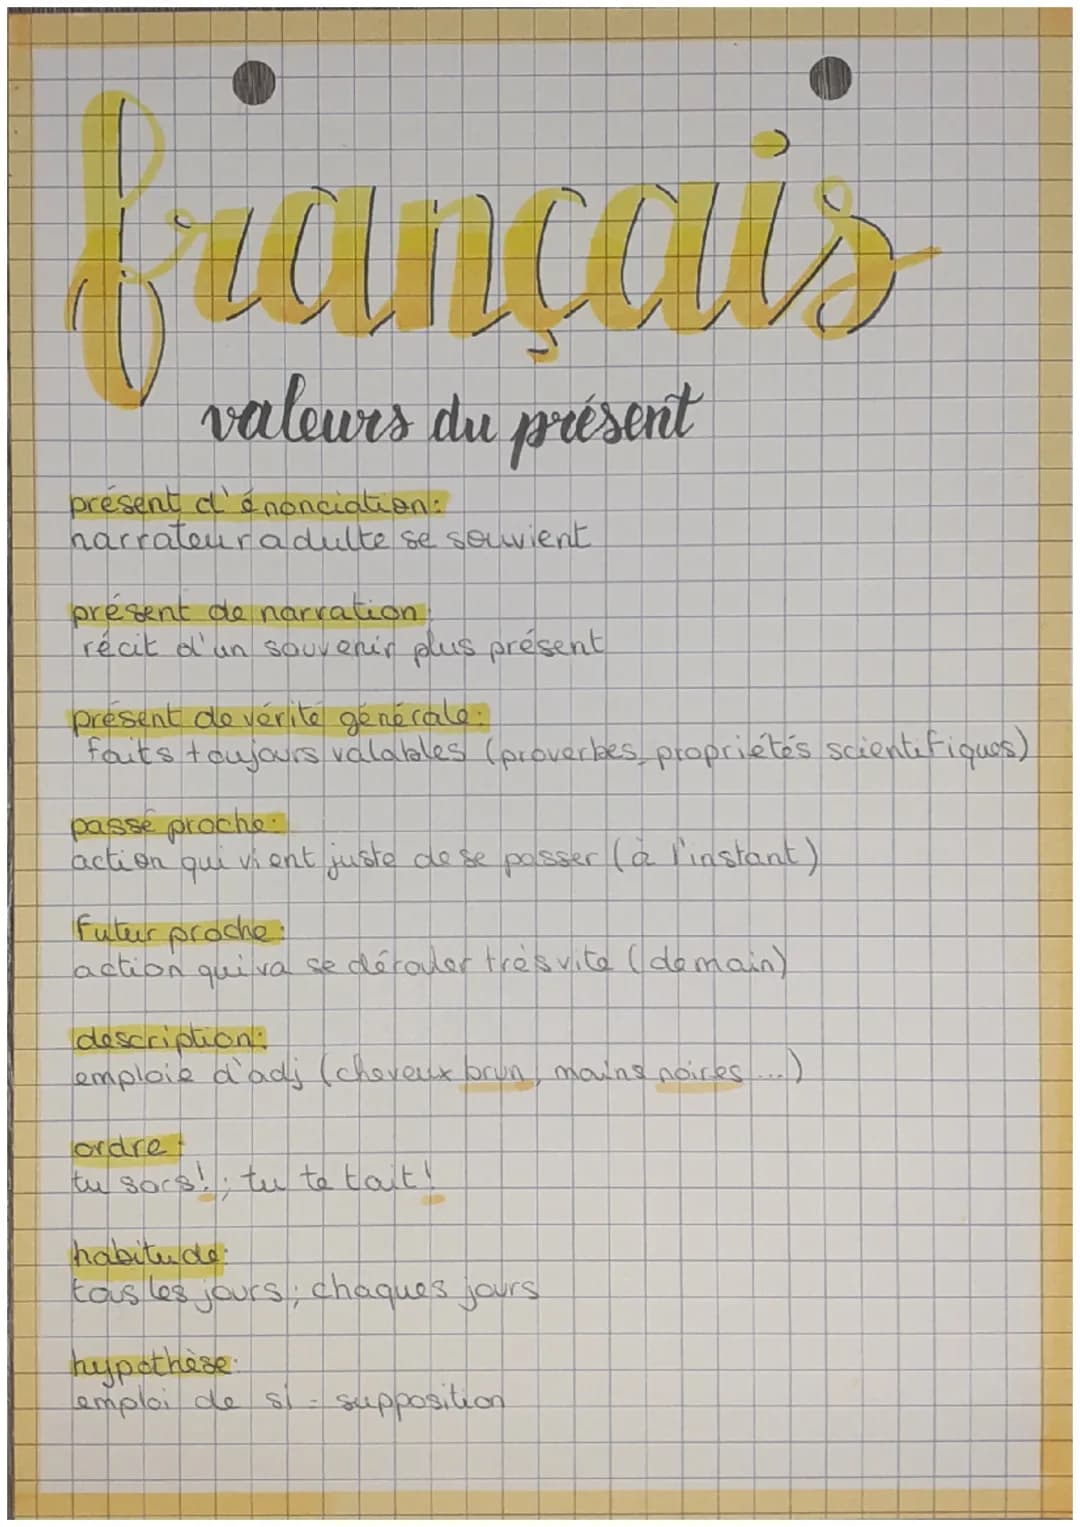 français
valeurs du présent
présent d'énonciation:
narrateur adulte se souvient
présent de narration:
récit d'un souvenir plus présent
présent de vérité générale:
faits toujours valables (proverbes, propriétés scientifiques)
passé proche:
action qui vient juste de se passer (à l'instant)
futur proche:
action qui va se dérouler très vite (demain)
description:
emploie d'adj (cheveux brun, mains noires ...)
ordre:
tu sors!; tu te tait!
habitude:
tous les jours; chaques jours
hypothèse:
emploi de si = supposition